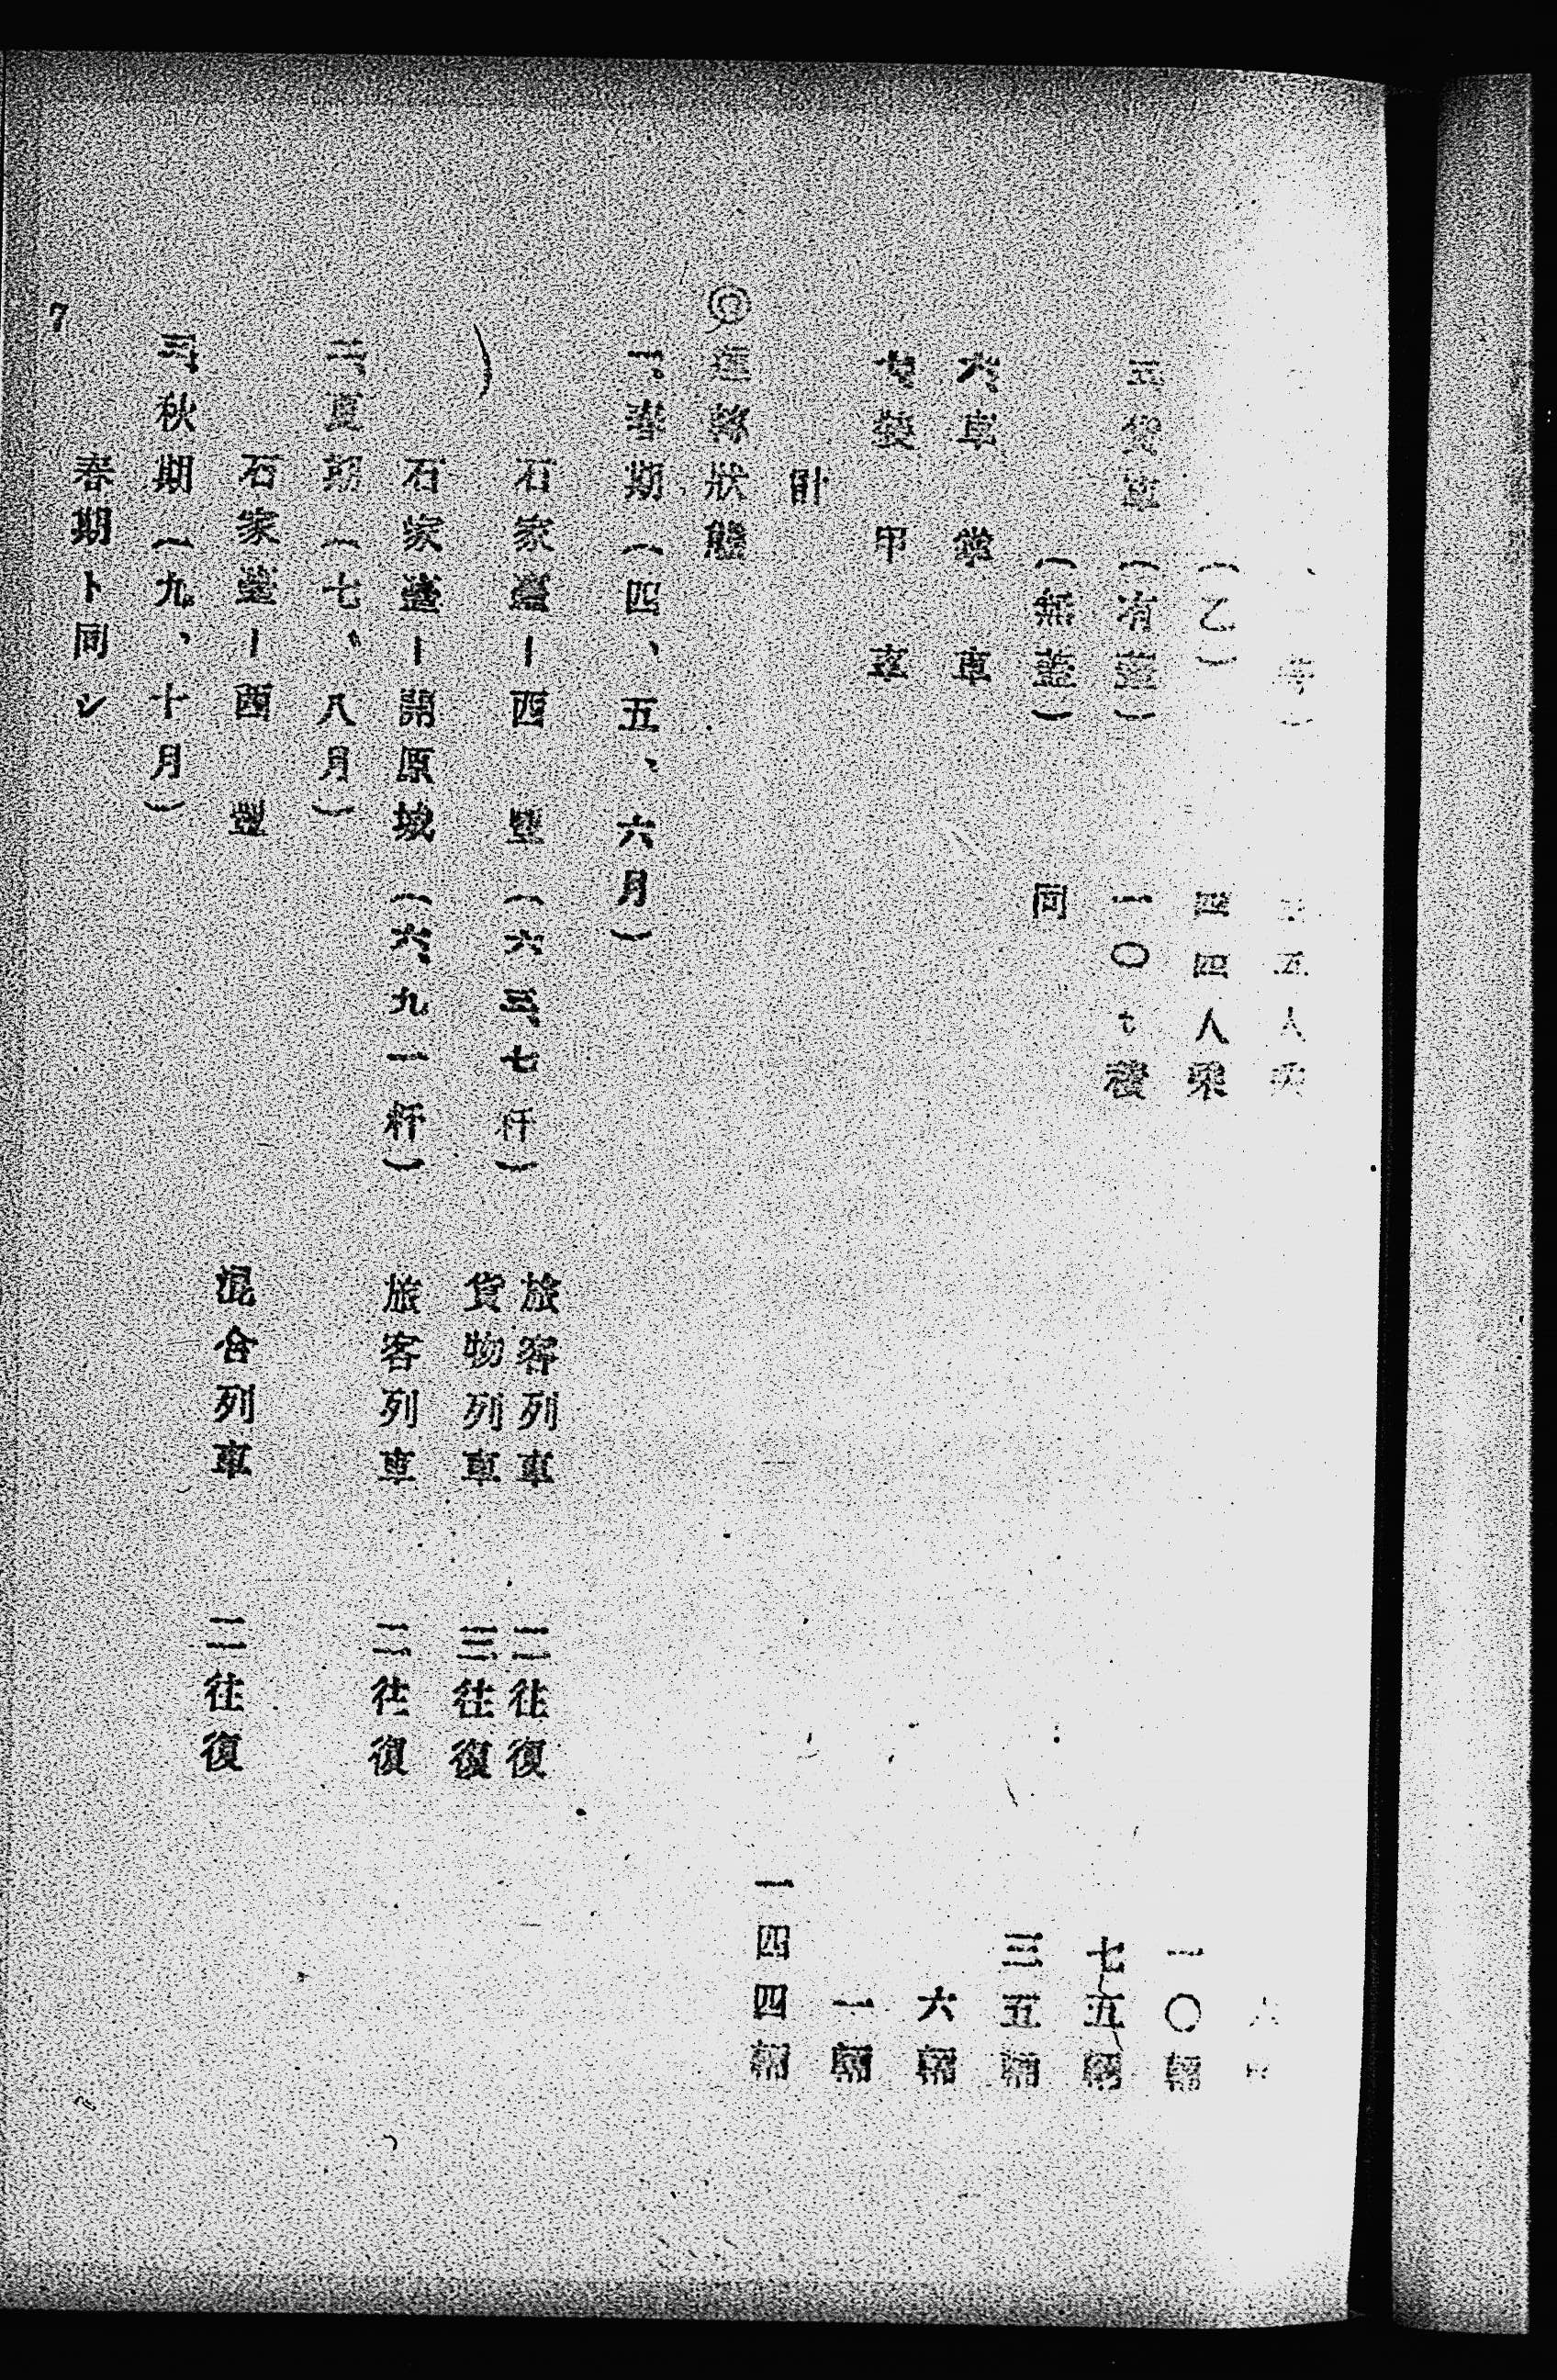 五人
(乙) 四四人乘 一〇輛
五、貨車(有蓋) 一〇t積 七五輛
(無蓋) 同 三五輛
六、車掌車 六輛
七、裝甲車 一輛
計 一四四輛
◎運轉狀態
一、春期(四、五、六月)
石家臺ー西豐(六三、七粁) 旅客列車 二往復
貨物列車 三往復
石家臺ー開原城(六、九一粁) 旅客列車 二往復
二、夏期(七、八月)
石家臺ー西豐 混合列車 二往復
三、秋期(九、十月)
春期ト同シ
7